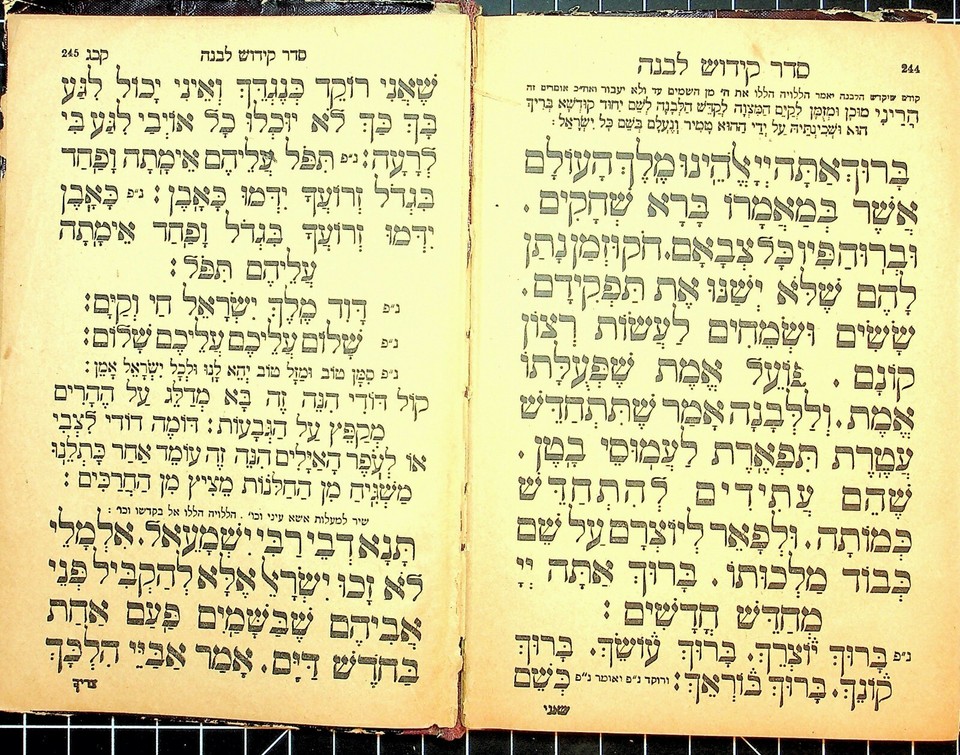 244
סדר קידוש לבנה
קודם שיקדש הלבנה יאמר הללויה הללו את ה׳ מן השמים עד ולא יעבור ואח״כ אומרים זה
הֲרֵינִי מוּכָן וּמְזֻמָּן לְקַיֵּם הַמִּצְוָה לְקַדֵּשׁ הַלְּבָנָה לְשֵׁם יִחוּד קוּדְשָׁא בְּרִיךְ
הוּא וּשְׁכִינְתֵּיהּ עַל יְדֵי הַהוּא טָמִיר וְנֶעְלָם בְּשֵׁם כָּל יִשְׂרָאֵל:
בָּרוּךְ אַתָּה יְיָ אֱלֹהֵינוּ מֶלֶךְ הָעוֹלָם
אֲשֶׁר בְּמַאֲמָרוֹ בָּרָא שְׁחָקִים.
וּבְרוּחַ פִּיו כָּל צְבָאָם. חֹק וּזְמַן נָתַן
לָהֶם שֶׁלֹּא יְשַׁנּוּ אֶת תַּפְקִידָם.
שָׂשִׂים וּשְׂמֵחִים לַעֲשׂוֹת רְצוֹן
קוֹנָם. פּוֹעֵל אֱמֶת שֶׁפְּעֻלָּתוֹ
אֱמֶת. וְלַלְּבָנָה אָמַר שֶׁתִּתְחַדֵּשׁ
עֲטֶרֶת תִּפְאֶרֶת לַעֲמוּסֵי בָטֶן.
שֶׁהֵם עֲתִידִים לְהִתְחַדֵּשׁ
כְּמוֹתָהּ. וּלְפָאֵר לְיוֹצְרָם עַל שֵׁם
כְּבוֹד מַלְכוּתוֹ. בָּרוּךְ אַתָּה יְיָ
מְחַדֵּשׁ חֳדָשִׁים:
ג״פ בָּרוּךְ יוֹצְרֵךְ. בָּרוּךְ עוֹשֵׂךְ. בָּרוּךְ
קוֹנֵךְ. בָּרוּךְ בּוֹרְאֵךְ: ורוקד ג״פ ואומר ג״פ כְּשֵׁם
שאני
סדר קידוש לבנה קכג 245
שֶׁאֲנִי רוֹקֵד כְּנֶגְדֵּךְ וְאֵינִי יָכוֹל לִגַּע
בָּךְ כַּךְ לֹא יוּכְלוּ כָּל אוֹיְבַי לִגַּע בִּי
לְרָעָה: ג״פ תִּפֹּל עֲלֵיהֶם אֵימָתָה וָפַחַד
בִּגְדֹל זְרוֹעֲךָ יִדְּמוּ כָּאָבֶן: ג״פ כָּאָבֶן
יִדְּמוּ זְרוֹעֲךָ בִּגְדֹל וָפַחַד אֵימָתָה
עֲלֵיהֶם תִּפֹּל:
ג״פ דָּוִד מֶלֶךְ יִשְׂרָאֵל חַי וְקַיָּם:
ג״פ שָׁלוֹם עֲלֵיכֶם עֲלֵיכֶם שָׁלוֹם:
ג״פ סִמָּן טוֹב וּמַזָּל טוֹב יְהֵא לָנוּ וּלְכָל יִשְׂרָאֵל אָמֵן:
קוֹל דּוֹדִי הִנֵּה זֶה בָּא מְדַלֵּג עַל הֶהָרִים
מְקַפֵּץ עַל הַגְּבָעוֹת: דּוֹמֶה דוֹדִי לִצְבִי
אוֹ לְעֹפֶר הָאַיָּלִים הִנֵּה זֶה עוֹמֵד אַחַר כָּתְלֵנוּ
מַשְׁגִּיחַ מִן הַחַלּוֹנוֹת מֵצִיץ מִן הַחֲרַכִּים:
שיר למעלות אשא עיני וכו׳. הללויה הללו אל בקדשו וכו׳:
תָּנָא דְבֵי רַבִּי יִשְׁמָעֵאל. אִלְמָלֵי
לֹא זָכוּ יִשְׂרָאֵל אֶלָּא לְהַקְבִּיל פְּנֵי
אֲבִיהֶם שֶׁבַּשָּׁמַיִם פַּעַם אַחַת
בַּחֹדֶשׁ דַּיָּם. אָמַר אַבַּיֵּי הִלְכָּךְ
צריך